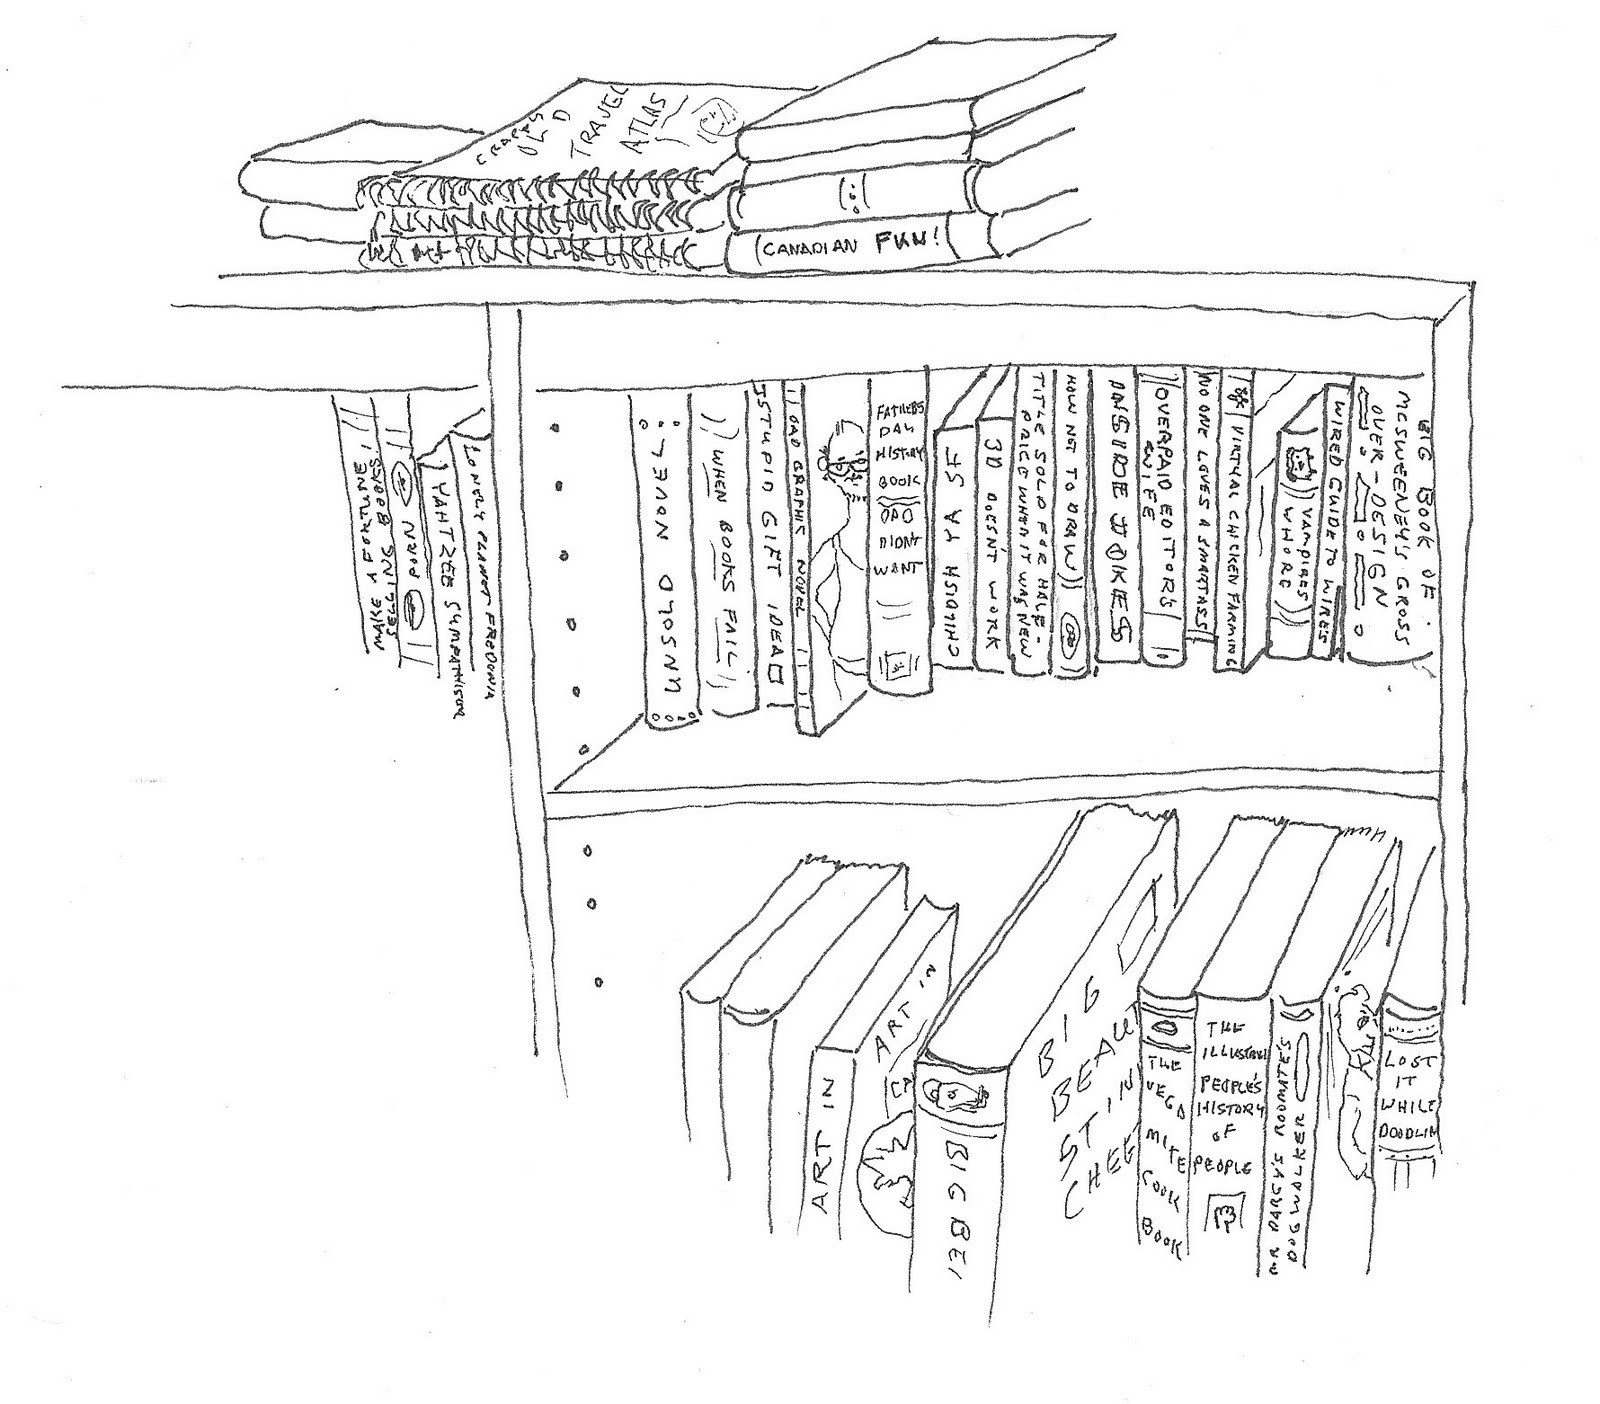 CRAPPY
OLD
TRAVEL
ATLAS
CANADIAN FUN!
MAKE A FORTUNE
SELLING BOOKS!
PORN
YAHTZEE SYMPATHISOR
LONELY PLANET FREDONIA
UNSOLD NOVEL
WHEN BOOKS FAIL
STUPID GIFT IDEA
BAD GRAPHIC NOVEL
FATHERS
DAY
HISTORY
BOOK
DAD
DIDNT
WANT
CHTOSH YA SE
3D DOESN'T WORK
TITLE SOLD FOR HALF-
PRICE WHEN IT WAS NEW
HOW NOT TO DRAW
INSIDE JOKES
OVERPAID EDITORS
NO ONE LOVES A SMARTASS
VIRTUAL CHICKEN FARMING
VAMPIRES
WHORE
WIRED GUIDE TO WIRES
BIG BOOK OF
MCSWEENEY'S GROSS
OVER-DESIGN
ART IN
ART IN
CA
BIG BEI
BIG
BEAUT
STIN
CHEE
THE
VEGA
MITE
COOK
BOOK
THE
ILLUSTRA
PEOPLE'S
HISTORY
OF
PEOPLE
MR DARCY'S ROOMATE'S
DOGWALKER
LOST
IT
WHILE
DOODLIN